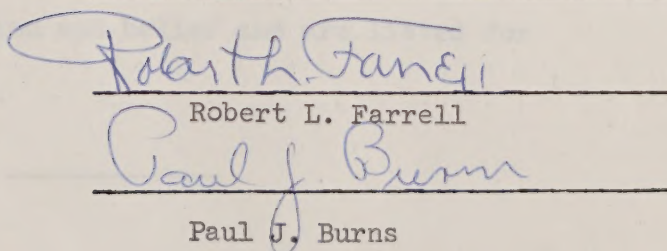 Robert L. Farrell
Robert L. Farrell
Paul J. Burns
Paul J. Burns